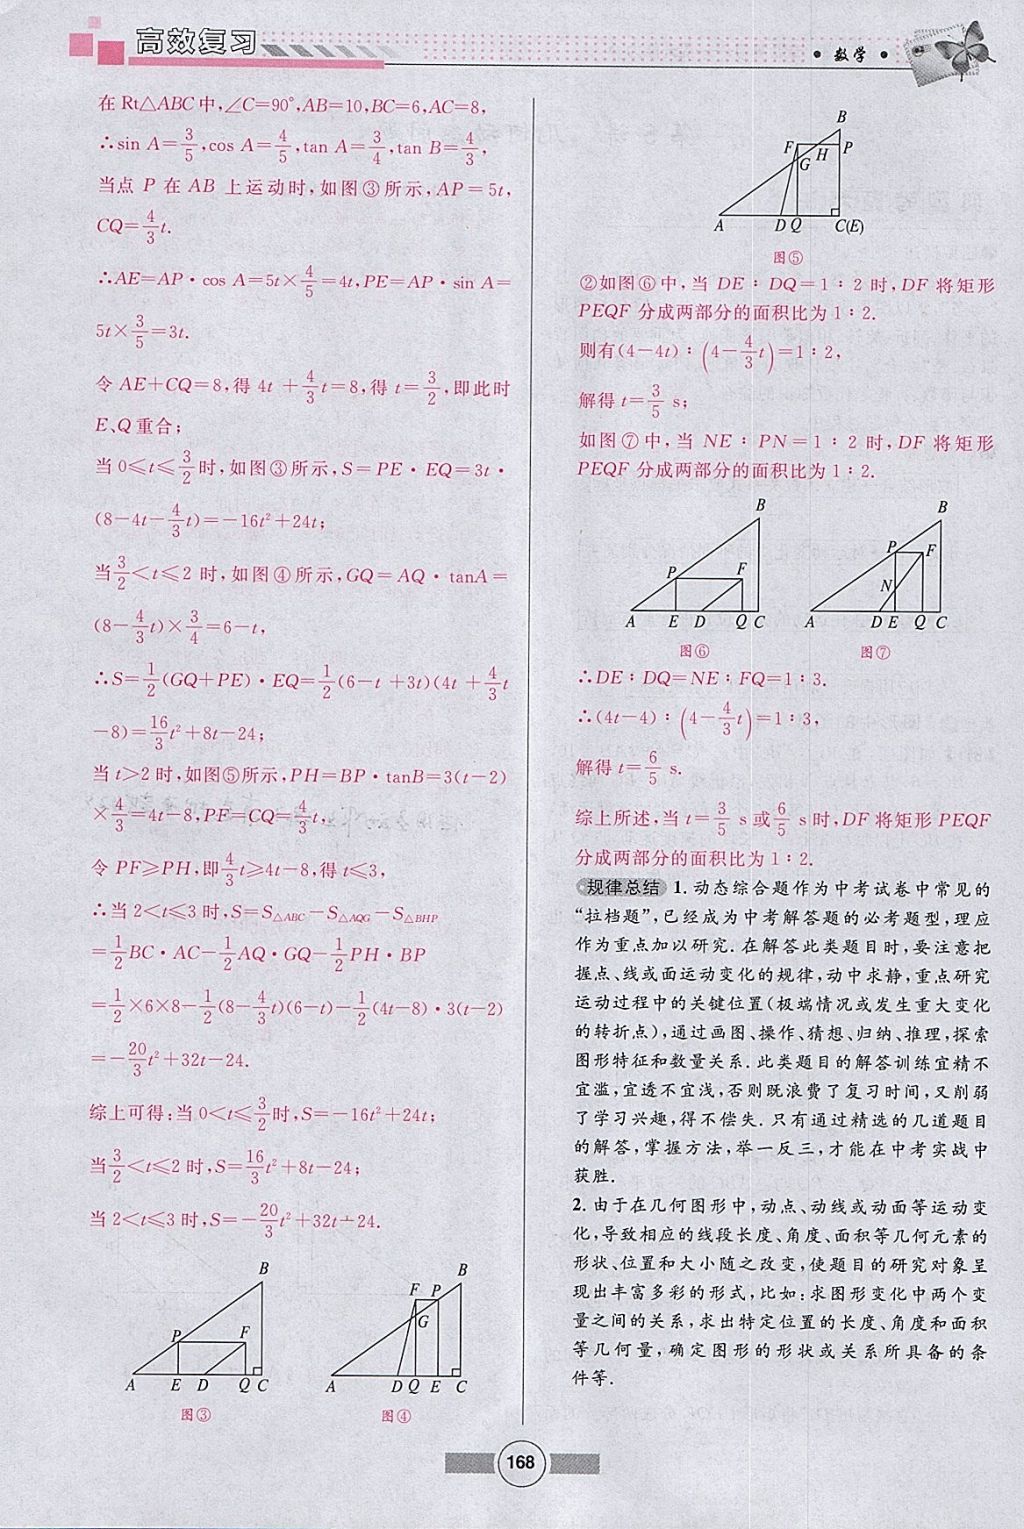 高效复习
·数学·
在 Rt△ABC 中,∠C=90°,AB=10,BC=6,AC=8,
∴sin A=3/5,cos A=4/5,tan A=3/4,tan B=4/3,
当点 P 在 AB 上运动时,如图③所示,AP=5t,
CQ=4/3t.
∴AE=AP·cos A=5t×4/5=4t,PE=AP·sin A=
5t×3/5=3t.
令 AE+CQ=8,得 4t+4/3t=8,得 t=3/2,即此时
E、Q 重合;
当 0≤t≤3/2时,如图③所示,S=PE·EQ=3t·
(8-4t-4/3t)=-16t²+24t;
当3/2<t≤2 时,如图④所示,GQ=AQ·tanA=
(8-4/3t)×3/4=6-t,
∴S=1/2(GQ+PE)·EQ=1/2(6-t+3t)(4t+4/3t
-8)=16/3t²+8t-24;
当 t>2 时,如图⑤所示,PH=BP·tanB=3(t-2)
×4/3=4t-8,PF=CQ=4/3t,
令 PF≥PH,即4/3t≥4t-8,得 t≤3,
∴当 2<t≤3 时,S=S△ABC-S△AQG-S△BHP
=1/2BC·AC-1/2AQ·GQ-1/2PH·BP
=1/2×6×8-1/2(8-4/3t)(6-t)-1/2(4t-8)·3(t-2)
=-20/3t²+32t-24.
综上可得:当 0<t≤3/2时,S=-16t²+24t;
当3/2<t≤2 时,S=16/3t²+8t-24;
当 2<t≤3 时,S=-20/3t²+32t-24.
B
P F
A E D Q C
图③
B
F P
G
A D Q E C
图④
B
F H P
G
A D Q C(E)
图⑤
②如图⑥中,当 DE∶DQ=1∶2 时,DF 将矩形
PEQF 分成两部分的面积比为 1∶2.
则有(4-4t)∶(4-4/3t)=1∶2,
解得 t=3/5 s;
如图⑦中,当 NE∶PN=1∶2 时,DF 将矩形
PEQF 分成两部分的面积比为 1∶2.
B
P F
A E D Q C
图⑥
B
P F
N
A D E Q C
图⑦
∴DE∶DQ=NE∶FQ=1∶3.
∴(4t-4)∶(4-4/3t)=1∶3,
解得 t=6/5 s.
综上所述,当 t=3/5 s或6/5 s时,DF 将矩形 PEQF
分成两部分的面积比为 1∶2.
规律总结 1. 动态综合题作为中考试卷中常见的
“拉档题”,已经成为中考解答题的必考题型,理应
作为重点加以研究. 在解答此类题目时,要注意把
握点、线或面运动变化的规律,动中求静,重点研究
运动过程中的关键位置(极端情况或发生重大变化
的转折点),通过画图、操作、猜想、归纳、推理,探索
图形特征和数量关系. 此类题目的解答训练宜精不
宜滥,宜透不宜浅,否则既浪费了复习时间,又削弱
了学习兴趣,得不偿失. 只有通过精选的几道题目
的解答,掌握方法,举一反三,才能在中考实战中
获胜.
2. 由于在几何图形中,动点、动线或动面等运动变
化,导致相应的线段长度、角度、面积等几何元素的
形状、位置和大小随之改变,使题目的研究对象呈
现出丰富多彩的形式,比如:求图形变化中两个变
量之间的关系,求出特定位置的长度、角度和面积
等几何量,确定图形的形状或关系所具备的条
件等.
168